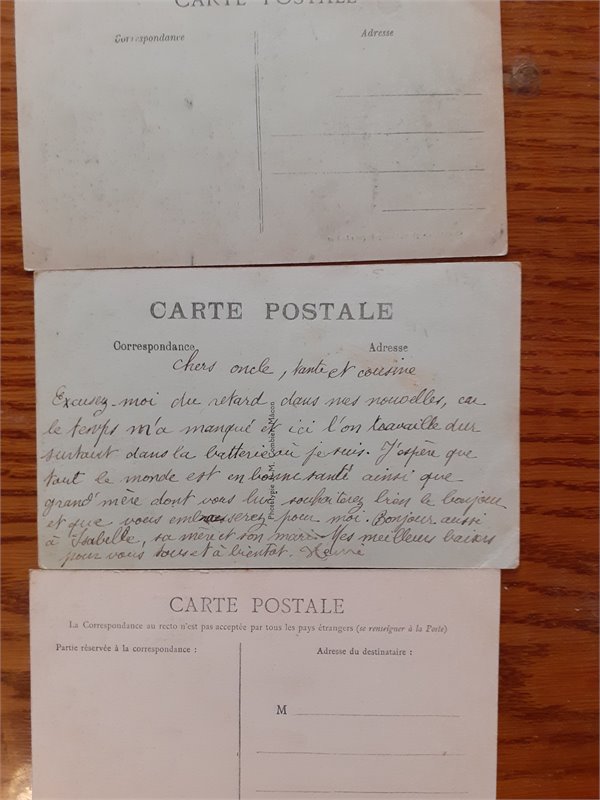 CARTE POSTALE
Correspondance Adresse
CARTE POSTALE
Correspondance Adresse
chers oncle, tante et cousine
Excusez-moi du retard dans mes nouvelles, car
le temps m'a manqué et ici l'on travaille dur
surtout dans la batterie où je suis. J'espère que
tout le monde est en bonne santé ainsi que
grand'mère dont vous lui souhaiterez bien le bonjour
et que vous embrasserez pour moi. Bonjour aussi
à Isabelle, sa mère et son mari. Mes meilleurs baisers
pour vous tous et à bientot.
Phototypie M. Combier Mâcon
CARTE POSTALE
La Correspondance au recto n'est pas acceptée par tous les pays étrangers (se renseigner à la Poste)
Partie réservée à la correspondance : Adresse du destinataire :
M